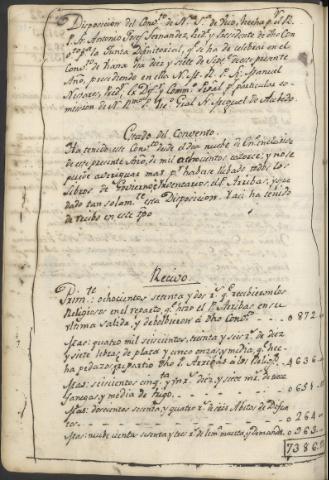 Disposicion del Conv.to de N.ra S.ra de Vico, hecha p.r el R.
P. Fr. Antonio Josef Fernandez, Lect.r y Presidente de dho Con
p.a la Junta Definitorial, q.e se ha de celebrar en el
Conv.to de Nana dia diez y siete de Sep.e de este presente
Año, presidiendo en ella N. M. R. P. Fr. Manuel
y Comm.o p.r particular co
mission de N. Rmo P. Vic.o Gral Fr. Miguel de Acebedo.
Estado del Convento.
Ha tenido este Conv.to desde el dia nuebe de En.o
de este presente Año, de mil ochocientos catorce; y no se
puede averiguar mas p.r haberse llebado todos los
Libros de Govierno, e Inventarios, el P. Arribas, y que
dado tan solam.te esta Disposicion. Y asi ha tenido
de recibo en este tpo
Recivo.
Prim.te: ochocientos setenta y dos r.s q.e recibieron los
Religiosos en el reparto q.e hizo el P. Arribas en su
ultima salida, y debolbieron a dho Conv.to - - - 0872
Mas: quatro mil seiscientos, treinta y seis r.s de diez
y siete libras de plata y cinco onzas y media q.e hec
ha pedazos repartio dho P. Arribas a los Relig.s - 4636
Mas: seiscientos cinq.ta y un r.s diez, y siete mrs de
fanegas, y media de trigo - - - 0651
Mas: doscientos sesenta y quatro r.s de seis Abitos de Difun
tos - - - 0264
Mas: nuebecientos sesenta y tres r.s de lim.a suelta, y demanda. 0963
7386